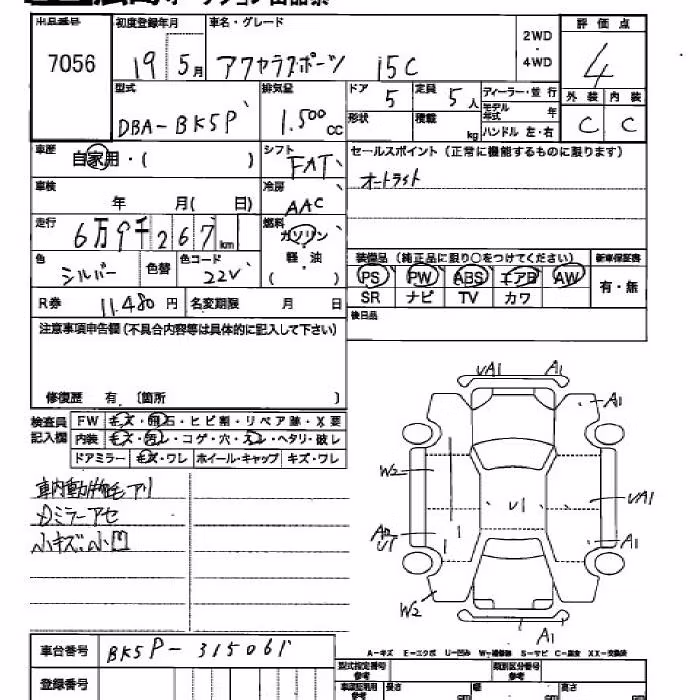 出品番号 初度登録年月 車名・グレード 評価点
7056 19 5月 アクセラスポーツ 15C 2WD・4WD 4
型式 排気量 ドア 5 定員 5人 ディーラー・並行 外装 内装
DBA-BK5P 1.500cc 形状 積載 kg モデル年式 年 ハンドル 左・右 C C
車歴 自家用・( ) シフト FAT セールスポイント (正常に機能するものに限ります)
車検 年 月( 日) 冷房 AAC オートライト
走行 6万9千267km 燃料 ガソリン
色 シルバー 色替 色コード 22V 軽・油 ( )
装備品 (純正品に限り○をつけてください) 新車保証書
PS PW ABS エアB AW 有・無
SR ナビ TV カワ
R券 11.480円 名変期限 月 日
後日品
注意事項申告欄(不具合内容等は具体的に記入して下さい)
修復歴 有 〔箇所 〕
検査員記入欄 FW キズ・飛石・ヒビ割・リペア跡・X要
内装 キズ・汚レ・コゲ・穴・スレ・ヘタリ・破レ
ドアミラー キズ・ワレ ホイール・キャップ キズ・ワレ
車内動物毛アリ
Dミラーアセ
小キズ・小凹
UA1 A1
A1
W2
U1
UA1
U1
A1
W2
A1
A-キズ E-エクボ U-凹み W-補修跡 S-サビ C-腐食 XX-交換済
車台番号 BK5P-315061
登録番号
型式指定番号 参考 類別区分番号 参考
長さ cm 幅 cm 高さ cm